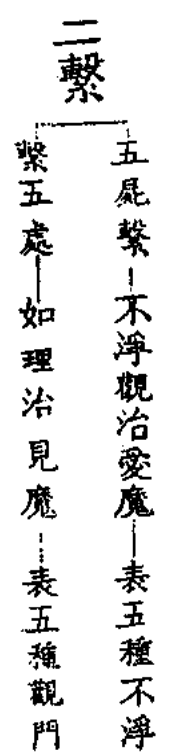 二繫
五屍繫—不淨觀治愛魔—表五種不淨
繫五處—如理治見魔—表五種觀門